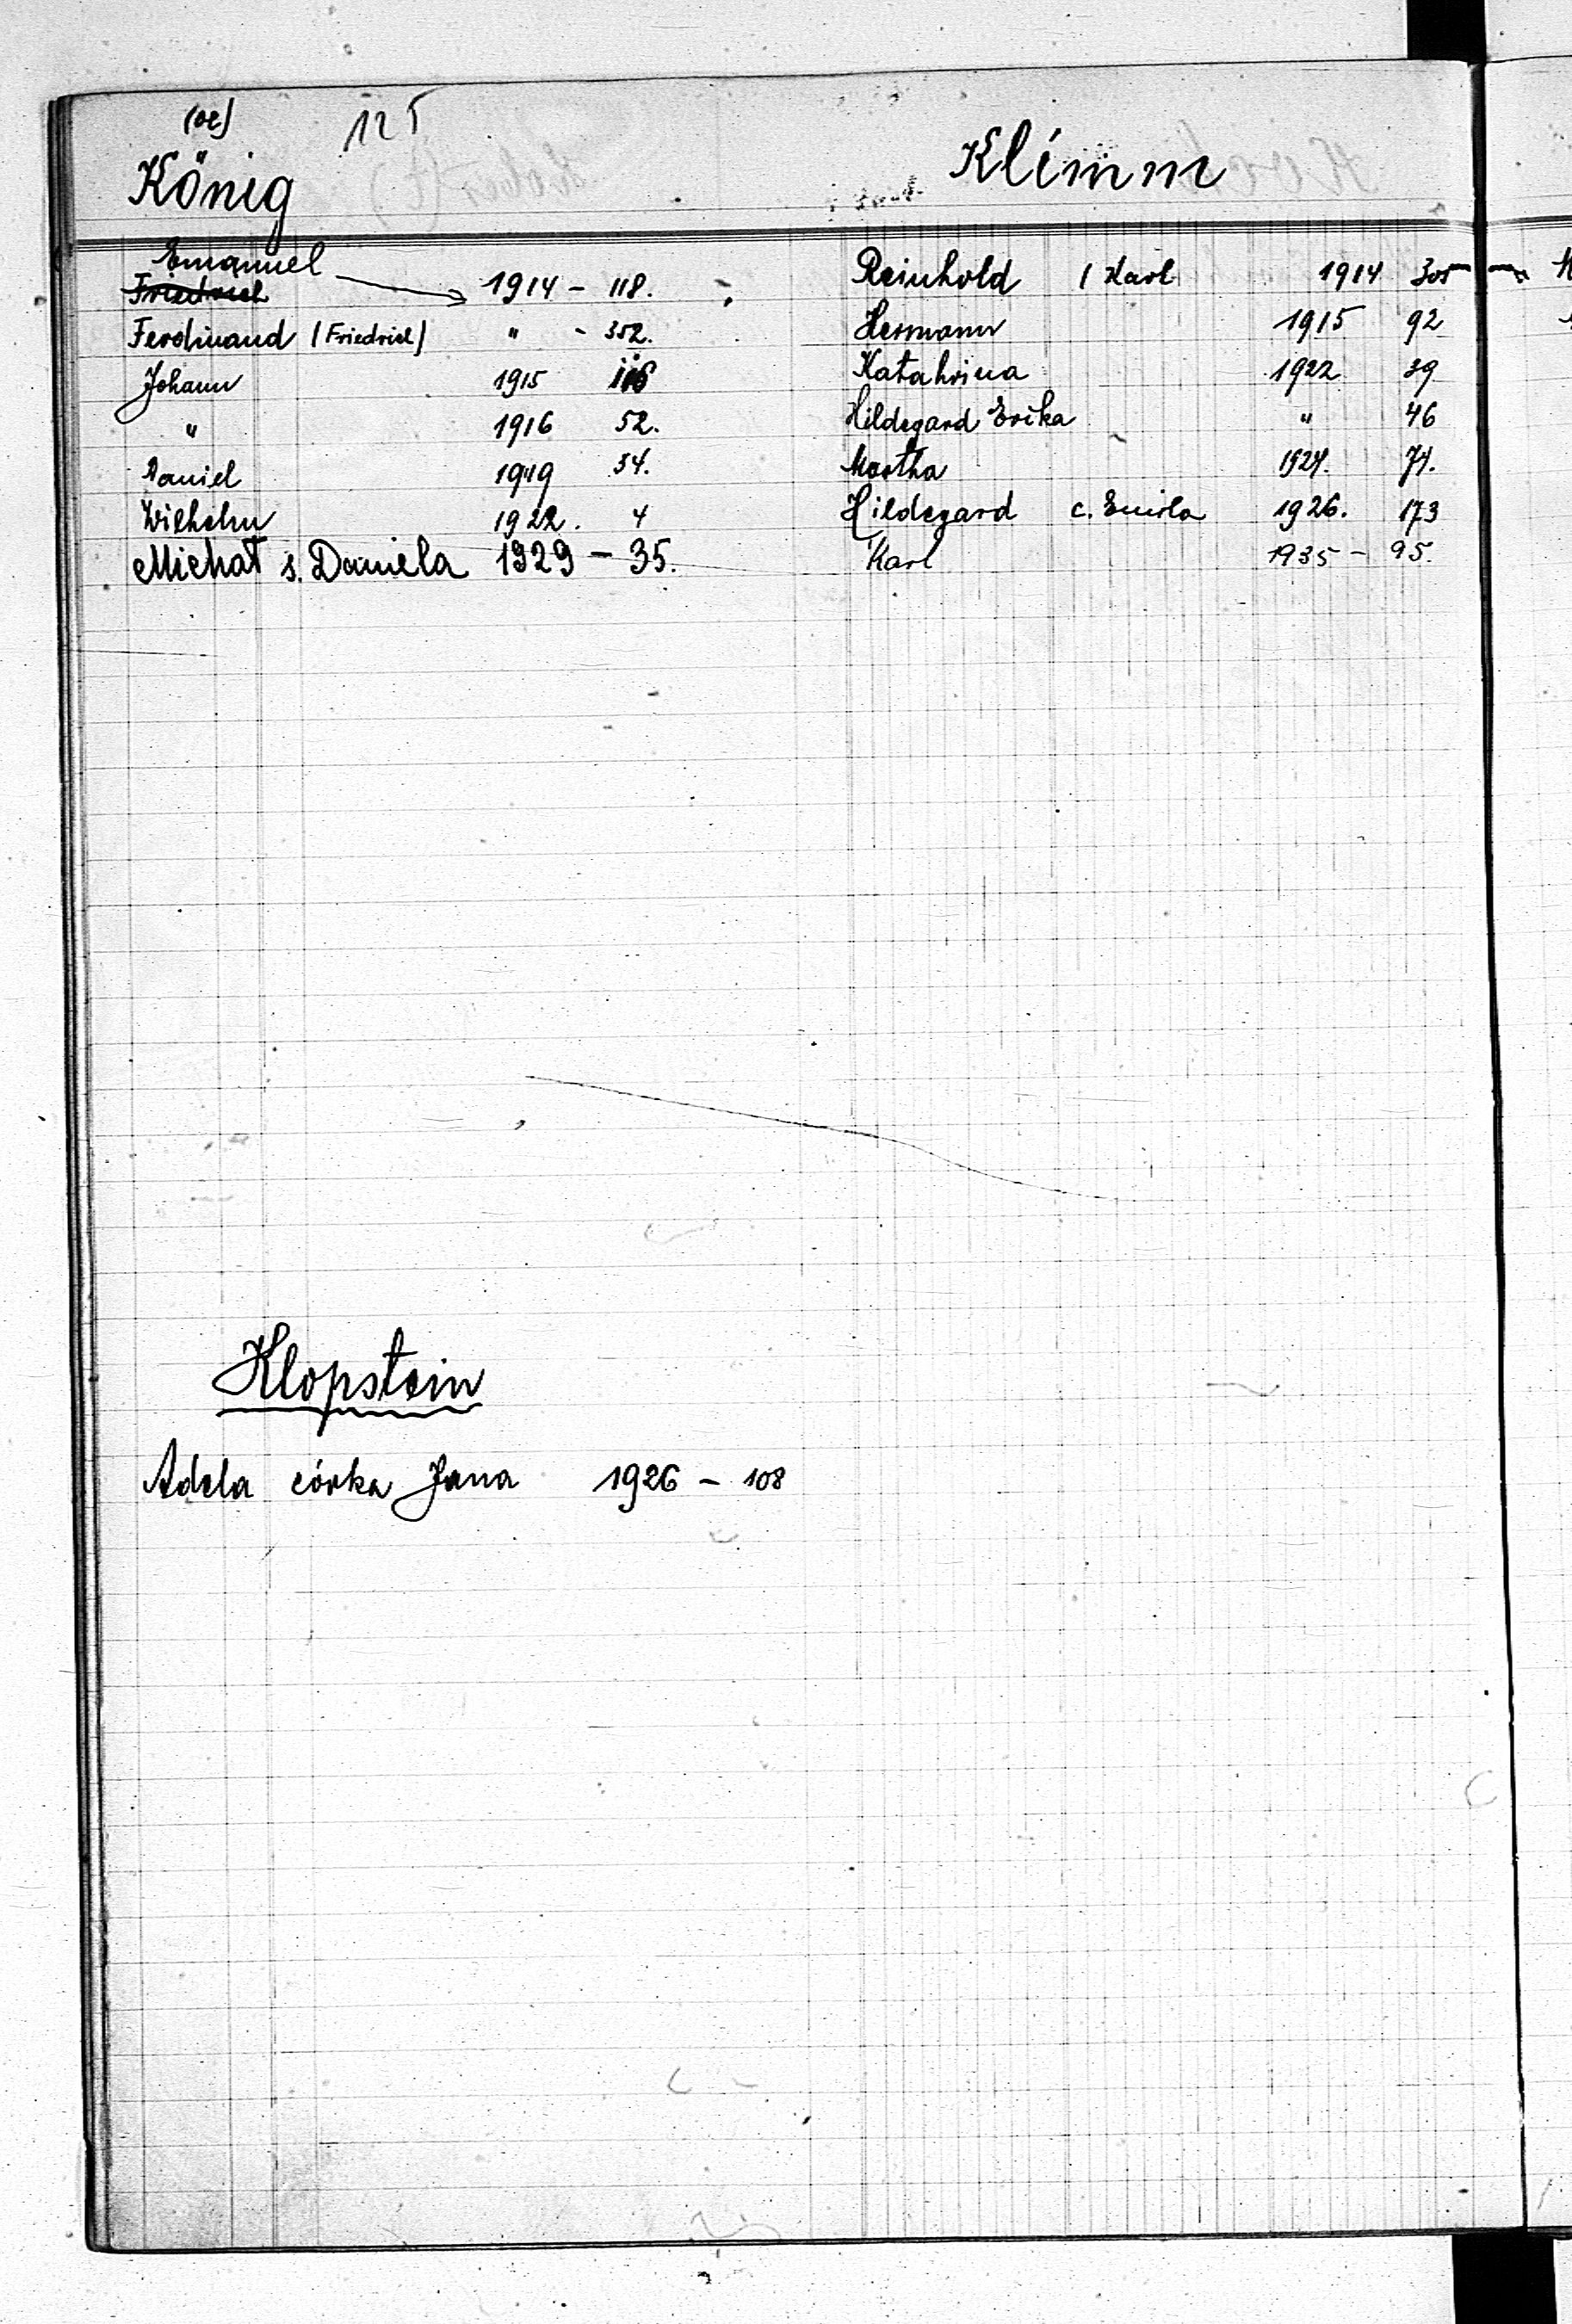 (oe) 125
König
Emanuel
Friedrich 1914 - 118.
Ferdinand (Friedrich) " - 352.
Johann 1915 116
" 1916 52.
Daniel 1919 34.
Wilhelm 1922. 4
Michał s. Daniela 1929 - 35.
Klopstein
Adela córka Jana 1926 - 108
Klimm
Reinhold / Karl 1914 305
Hermann 1915 92
Katahrina 1922 39
Hildegard Erika " 46
Martha 1924. 74.
Hildegard c. Emila 1926. 173
Karl 1935 - 95.